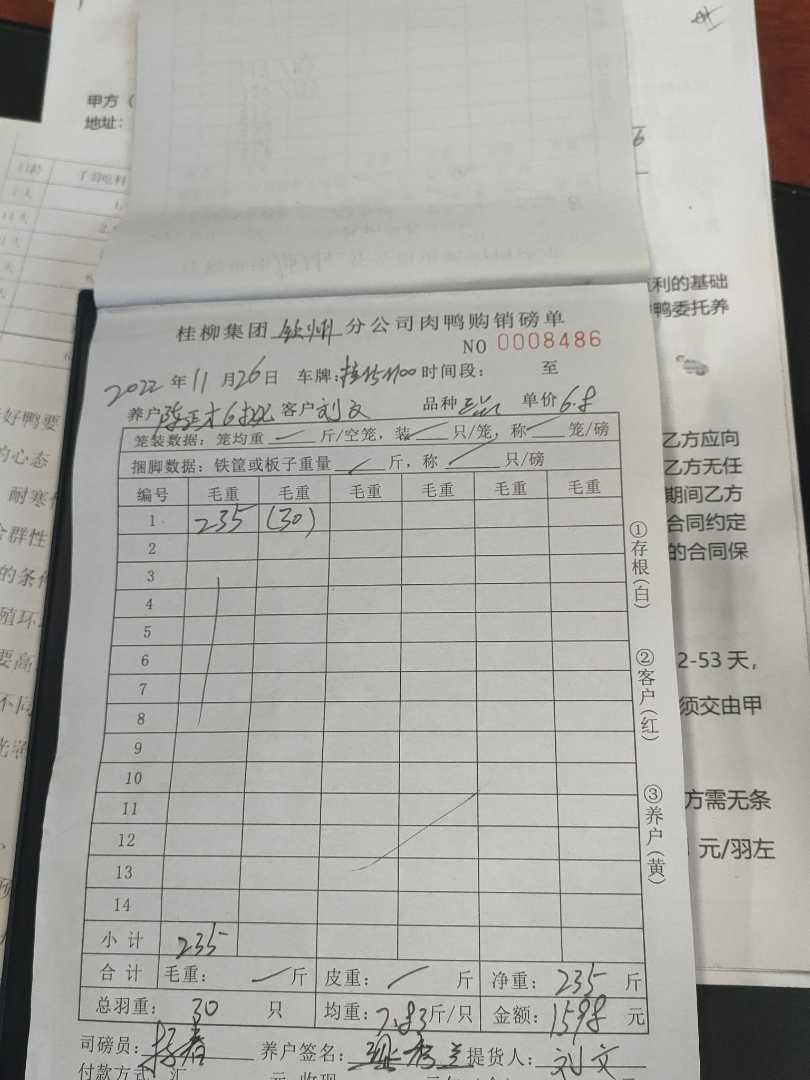 甲方（
地址：
日龄
子鸭吃料
利的基础
鸭委托养
桂柳集团 钦州 分公司肉鸭购销磅单
NO 0008486
2022 年 11 月 26 日 车牌： 时间段： 至
养户 客户 刘文 品种 单价 6.8
笼装数据：笼均重 斤/空笼，装 只/笼，称 笼/磅
捆脚数据：铁筐或板子重量 斤，称 只/磅
编号 毛重 毛重 毛重 毛重 毛重 毛重
1 235 (30)
2
3
4
5
6
7
8
9
10
11
12
13
14
小计 235
合计 毛重： 斤 皮重： 斤 净重：235 斤
总羽重：30 只 均重：7.83 斤/只 金额：1598 元
司磅员： 养户签名： 提货人：刘文
付款方式 汇 元 收现
①存根（白）
②客户（红）
③养户（黄）
好鸭要
的心态
耐寒
合群性
的条件
殖环
要高
不同
乙方应向
乙方无任
期间乙方
合同约定
的合同保
2-53 天，
须交由甲
方需无条
元/羽左